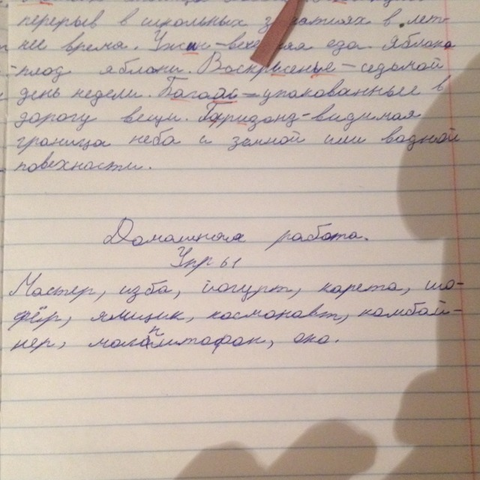 перерыв в школьных занятиях в лет-
нее время. Ужин-вечерняя еда. Яблоко
-плод яблони. Воскресенье-седьмой
день недели. Багаж-упакованные в
дорогу вещи. Гаризонд-видимая
граница неба и земной или водной
повехности.
Домашняя работа.
Упр 61
Мастер, изба, йогурт, карета, шо-
фёр, ямщик, космонавт, комбай-
нер, могатитофон, око.